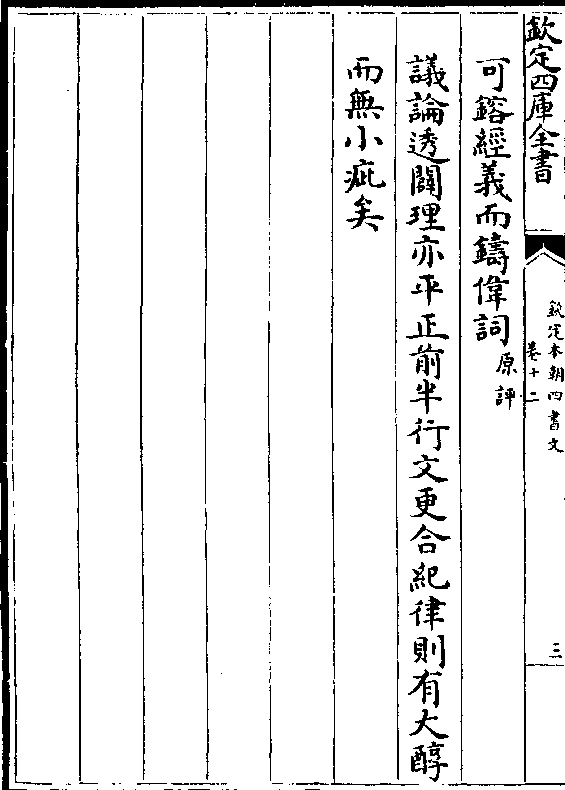 欽定四庫全書
欽定本朝四書文
卷十二
三
可鎔經義而鑄偉詞原評
議論透闢理亦平正前半行文更合紀律則有大醇
而無小疵矣